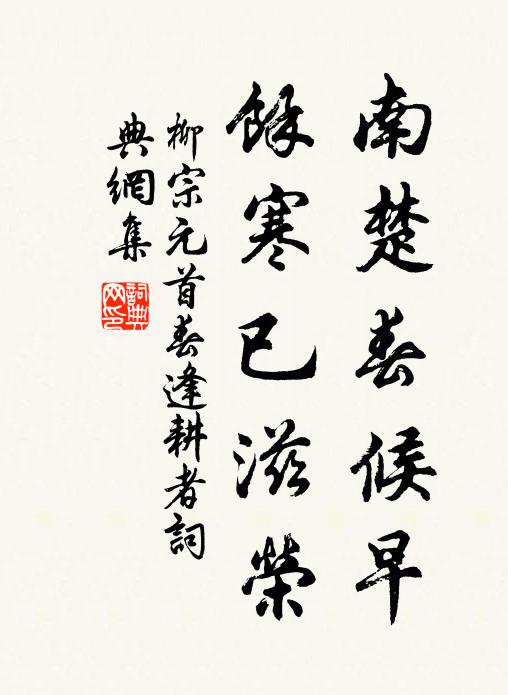 南楚春候早
餘寒已滋榮
柳宗元首春逢耕者詞
典網集
詞典网印